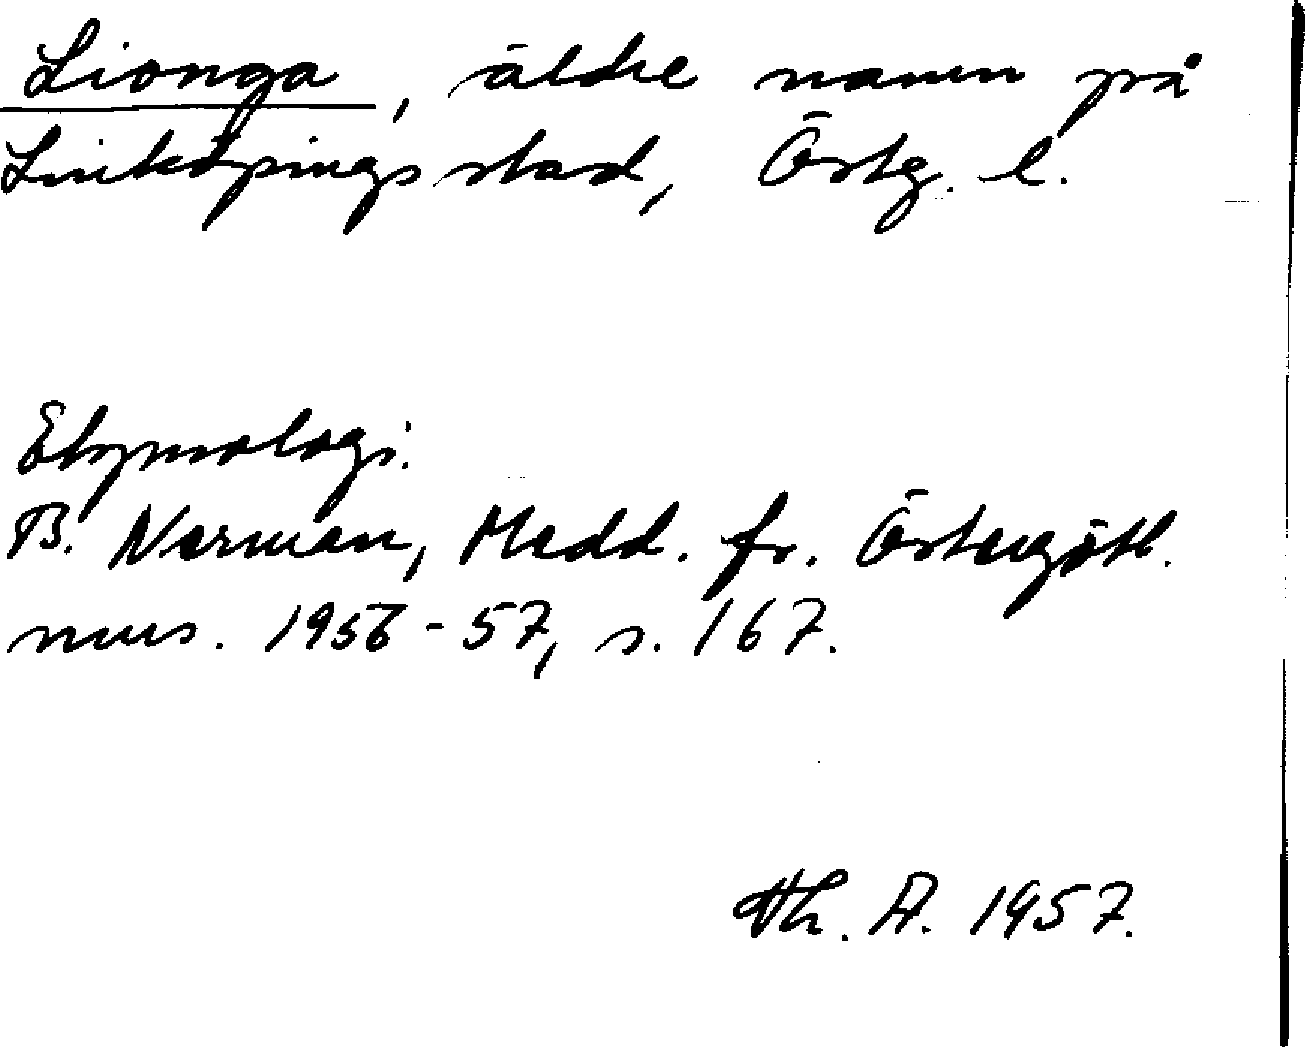 Lionga, äldre namn på
Linköpings stad, Östg. l.
Etymologi.
B. Norman, Medd. fr. Östergötl.
mus. 1956-57, s. 167.
Th. A. 1957.